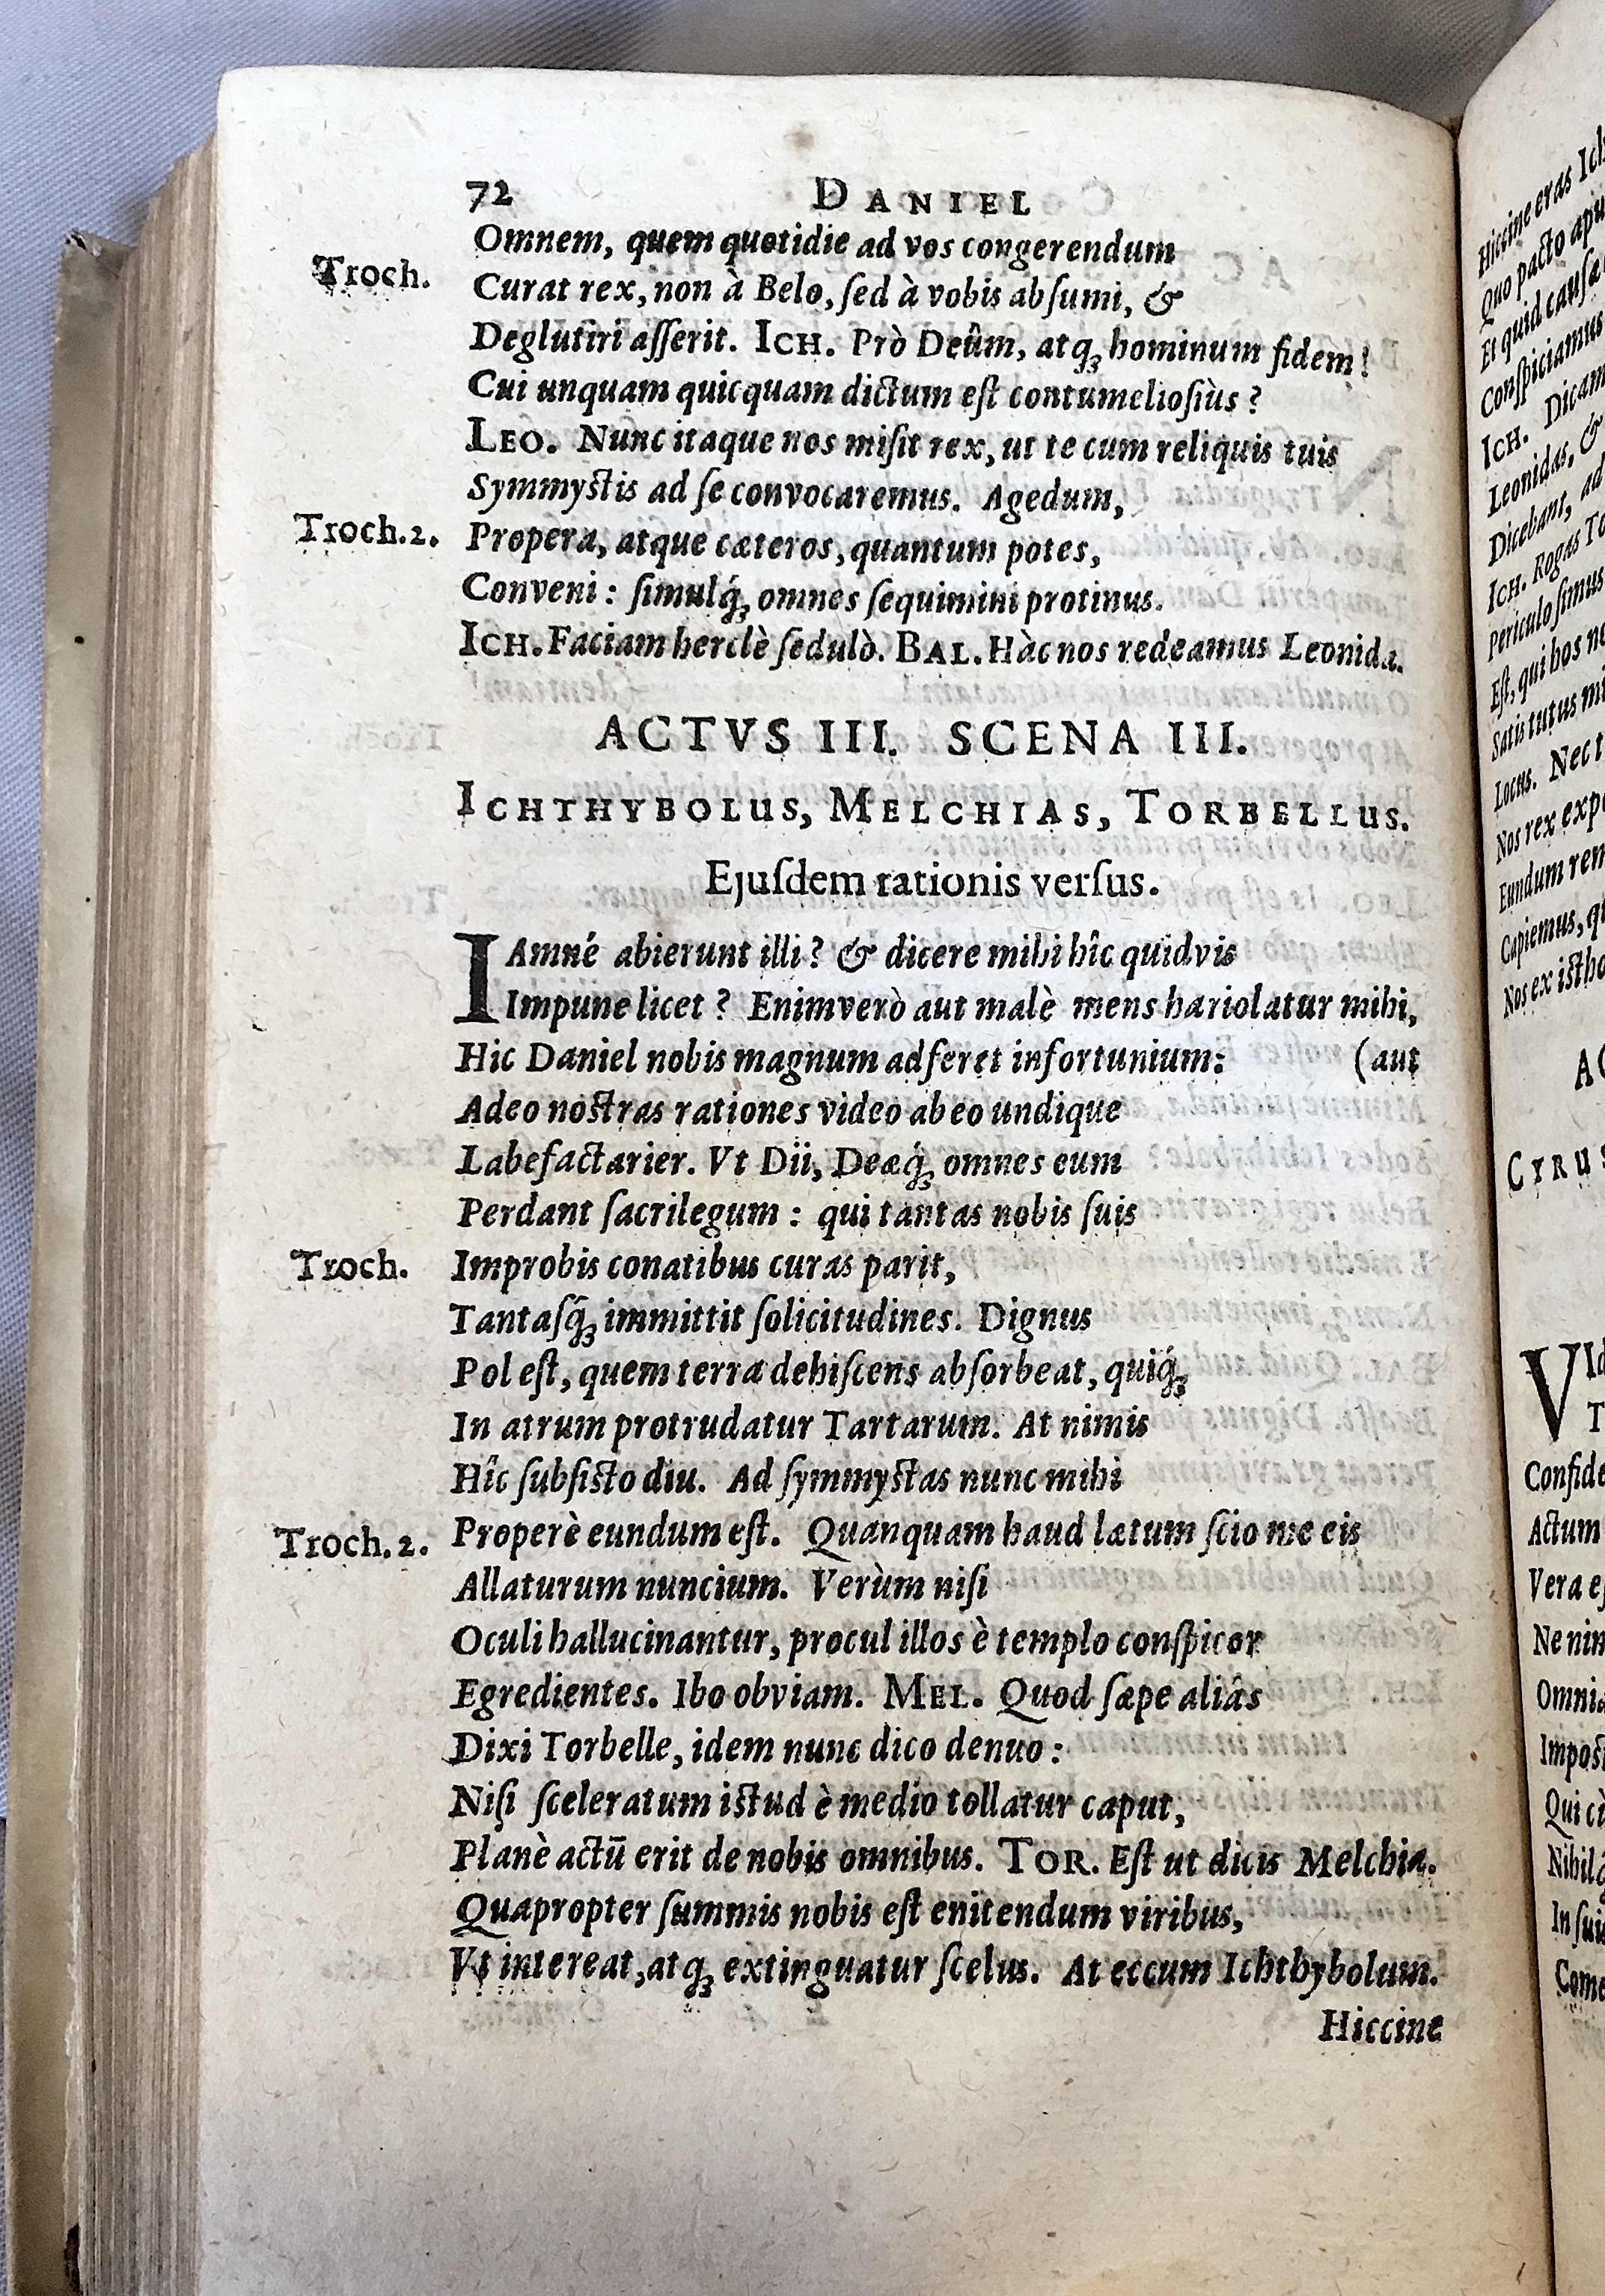 72 DANIEL
Omnem, quem quotidie ad vos congerendum
Troch. Curat rex, non à Belo, ſed à vobis abſumi, &
Deglutiri aſſerit. ICH. Prò Deûm, atq́; hominum fidem!
Cui unquam quicquam dictum eſt contumelioſiùs?
LEO. Nunc itaque nos miſit rex, ut te cum reliquis tuis
Symmyſtis ad ſe convocaremus. Agedum,
Troch.2. Propera, atque cæteros, quantum potes,
Conveni: ſimulq́; omnes ſequimini protinus.
ICH. Faciam herclè ſedulò. BAL. Hàc nos redeamus Leonida.
ACTVS III. SCENA III.
ICHTHYBOLUS, MELCHIAS, TORBELLUS.
Ejuſdem rationis verſus.
IAmné abierunt illi? & dicere mihi hîc quidvis
Impune licet? Enimverò aut malè mens hariolatur mihi,
Hic Daniel nobis magnum adferet infortunium: (aut
Adeo noſtras rationes video ab eo undique
Labefactarier. Vt Dii, Deæq́; omnes eum
Perdant ſacrilegum: qui tantas nobis ſuis
Troch. Improbis conatibus curas parit,
Tantaſq́; immittit ſolicitudines. Dignus
Pol eſt, quem terra dehiſcens abſorbeat, quiq́;
In atrum protrudatur Tartarum. At nimis
Hîc ſubſiſto diu. Ad ſymmyſtas nunc mihi
Troch.2. Properè eundum eſt. Quanquam haud lætum ſcio me eis
Allaturum nuncium. Verùm niſi
Oculi hallucinantur, procul illos è templo conſpicor
Egredientes. Ibo obviam. MEL. Quod ſæpe aliâs
Dixi Torbelle, idem nunc dico denuo:
Niſi ſceleratum iſtud è medio tollatur caput,
Planè actū erit de nobis omnibus. TOR. Eſt ut dicis Melchia.
Quapropter ſummis nobis eſt enitendum viribus,
Vt intereat, atq́; extinguatur ſcelus. At eccum Ichthybolum.
Hiccine
Hiccine eras Ich
Quo pacto apu
Et quid cauſæ
Conſpiciamus
ICH. Dicam
Leonidas, &
Dicebant, ad
ICH. Rogas To
Periculoſimus
Eſt, qui hos no
Satis tutus mi
Locus. Nec t
Nos rex expe
Eundum ren
Capiemus, qu
Nos ex iſtho
AC
CYRUS
VId
T
Confide
Actum
Vera eſ
Ne nim
Omnia
Impoſt
Qui ci
Nihil
In ſuis
Come